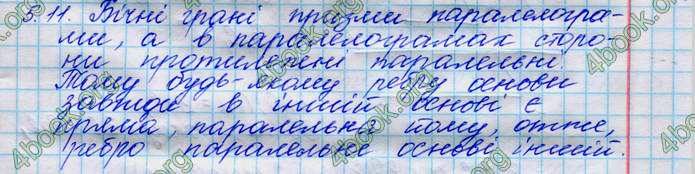 5.11. Бічні грані призми паралелогра-
ми, а в паралелограмах сторо-
ни протилежні паралельні.
Тому будь-якому ребру основи
завжди в іншій основі є
пряма, паралельна йому, отже,
ребро паралельне основі іншій.